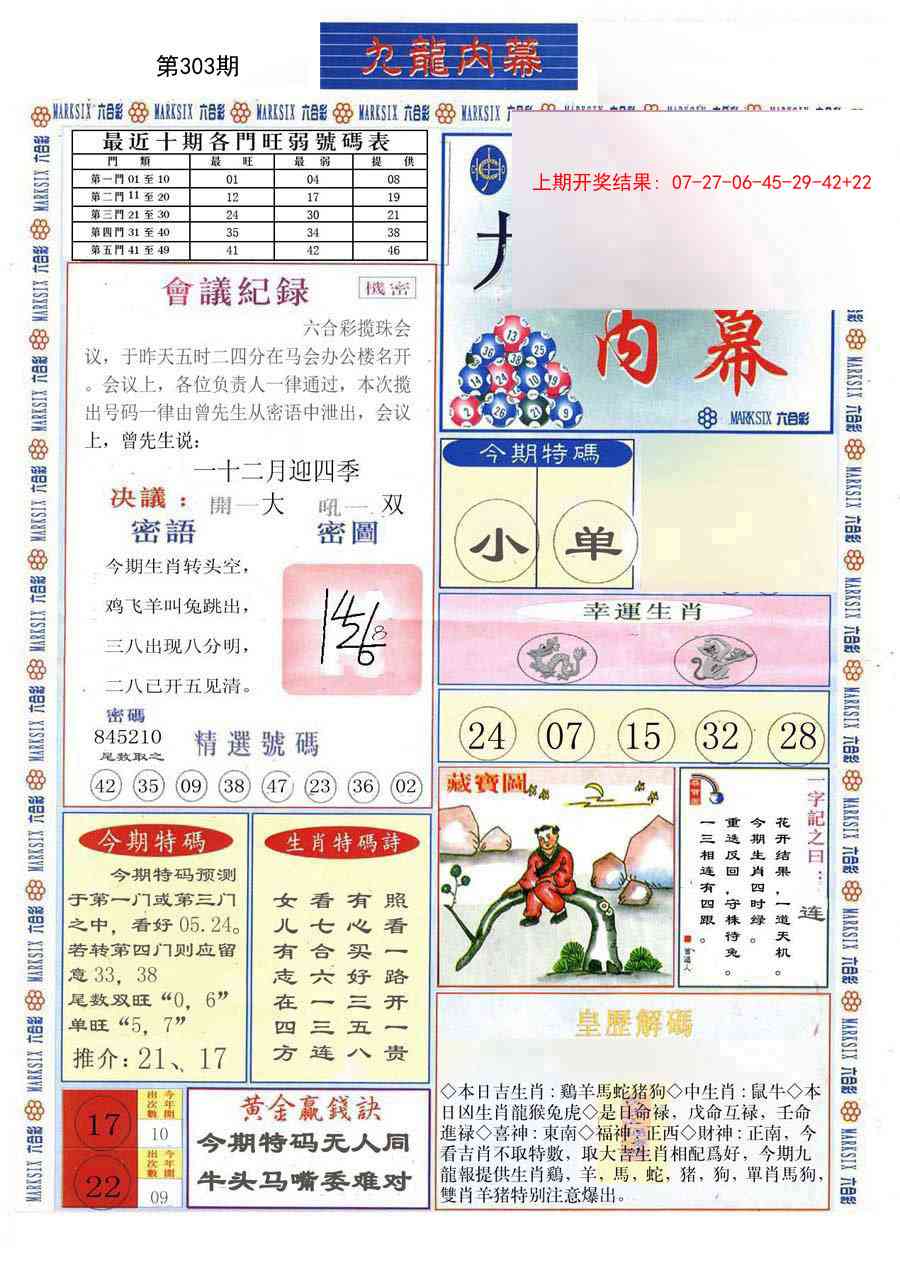 第303期
九龍內幕
MARKSIX 六合彩 MARKSIX 六合彩 MARKSIX 六合彩 MARKSIX 六合彩
最近十期各門旺弱號碼表
門類 最旺 最弱 提供
第一門 01 至 10 01 04 08
第二門 11 至 20 12 17 19
第三門 21 至 30 24 30 21
第四門 31 至 40 35 34 38
第五門 41 至 49 41 42 46
上期开奖结果：07-27-06-45-29-42+22
内幕
13
36 38 25
14 24 10 19
2 26 21 9
MARKSIX 六合彩
會議紀録
機密
六合彩揽珠会
议，于昨天五时二四分在马会办公楼名开
。会议上，各位负责人一律通过，本次揽
出号码一律由曾先生从密语中泄出，会议
上，曾先生说：
一十二月迎四季
决議：開一大 吼一双
密語 密圖
今期生肖转头空，
鸡飞羊叫兔跳出，
三八出现八分明，
二八已开五见清。
密碼
845210
尾数取之
精選號碼
42 35 09 38 47 23 36 02
今期特碼
小 单
幸運生肖
24 07 15 32 28
藏寶圖
一字記之曰：连
花开结果，一道天机。
今期生肖四时绿。
重迭反回，守株待兔。
一三相连有四跟。
今期特碼
今期特码预测
于第一门或第三门
之中，看好 05.24。
若转第四门则应留
意 33，38
尾数双旺“0，6”
单旺“5，7”
推介：21、17
生肖特碼詩
女看有照
儿七心看
有合买一
志六好路
在一三开
四三五一
方连八贵
17
今年開出次數
10
22
今年開出次數
09
黃金贏錢訣
今期特码无人同
牛头马嘴委难对
皇歷解碼
◇本日吉生肖：鷄羊馬蛇猪狗◇中生肖：鼠牛◇本
日凶生肖龍猴兔虎◇是日命禄，戊命互禄，壬命
進禄◇喜神：東南◇福神：正西◇財神：正南，今
看吉肖不取特數，取大吉生肖相配爲好，今期九
龍報提供生肖鷄，羊，馬，蛇，猪，狗，單肖馬狗，
雙肖羊猪特别注意爆出。